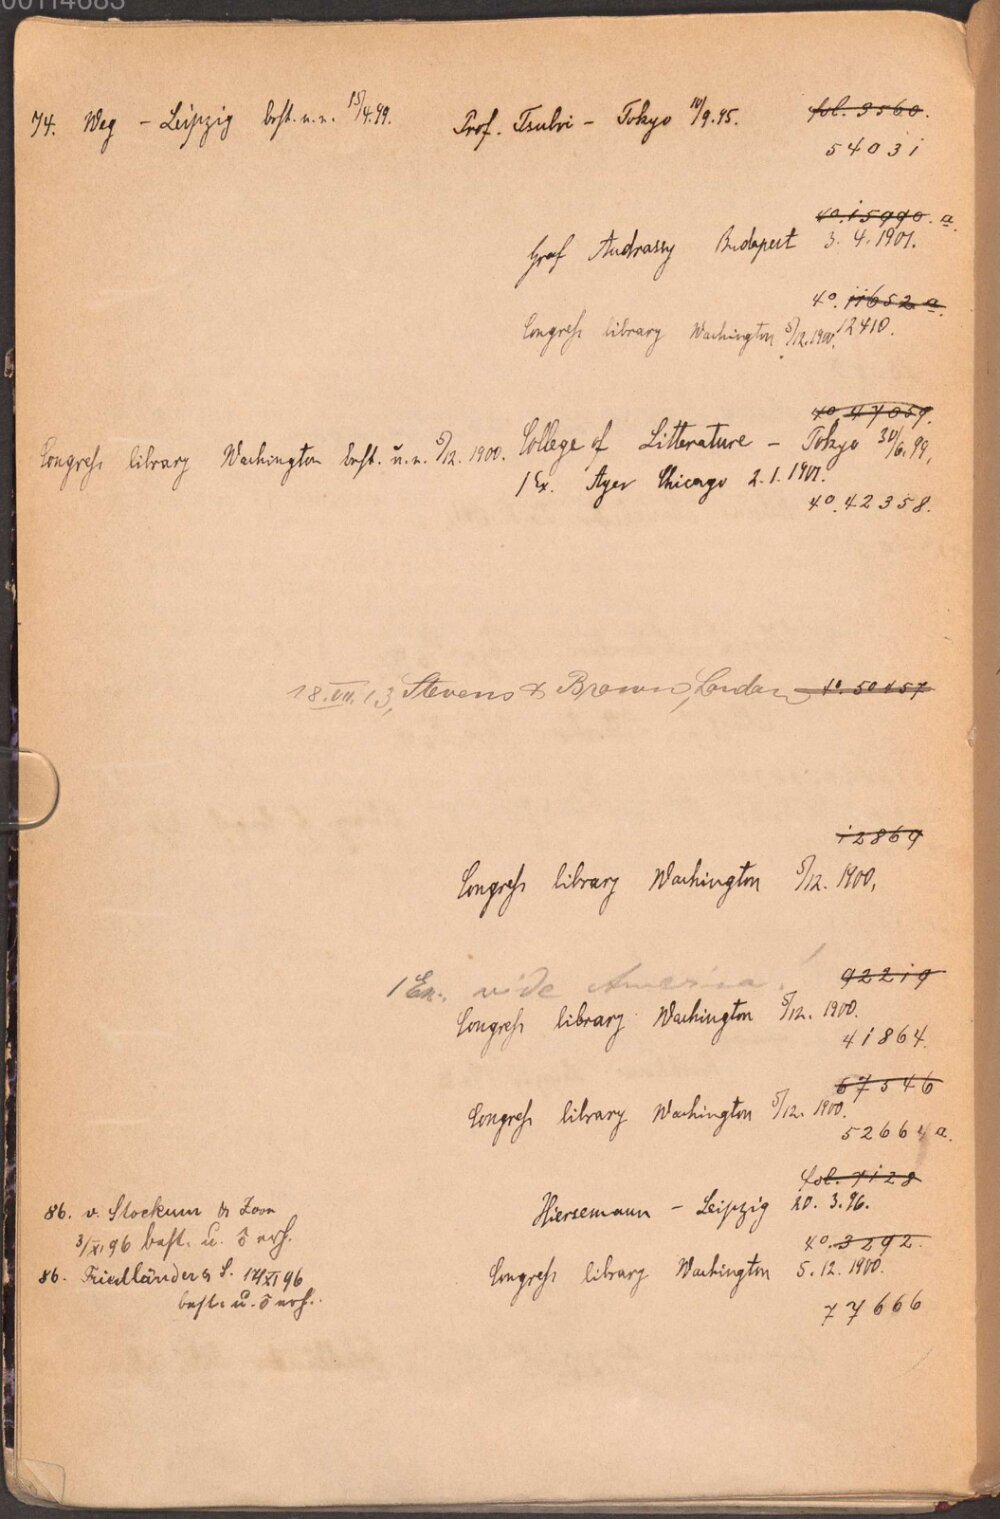 00114683
74. Weg - Leipzig best. u. n. 15/4.99. Prof. Tsuboi - Tokyo 10/9.95. fol. 3560.
54031
4o. 15990. a.
Graf Andrassy Budapest 3. 4. 1901.
4o. 11652 a.
Congress library Washington 5/12. 1900. 12410.
4o 47059.
Congress library Washington best. u. n. 5/12. 1900. College of Litterature - Tokyo 30/6. 99,
1 Ex. Ayer Chicago 2. 1. 1901.
4o. 42358.
18. VII. 13, Stevens & Brown, London 4o. 50457
12869
Congress library Washington 5/12. 1900.
1 Ex. vide America! 92219
Congress library Washington 5/12. 1900.
41864.
67546
Congress library Washington 5/12. 1900.
52664 a.
fol. 7128
86. v. Stockum & Zoon Hiersemann - Leipzig 20. 3. 96.
3/XI 96 best. u. ō erh. 4o. 3292.
86. Friedländer & S. 14/XI 96 Congress library Washington 5. 12. 1900.
best. u. ō erh.
77666